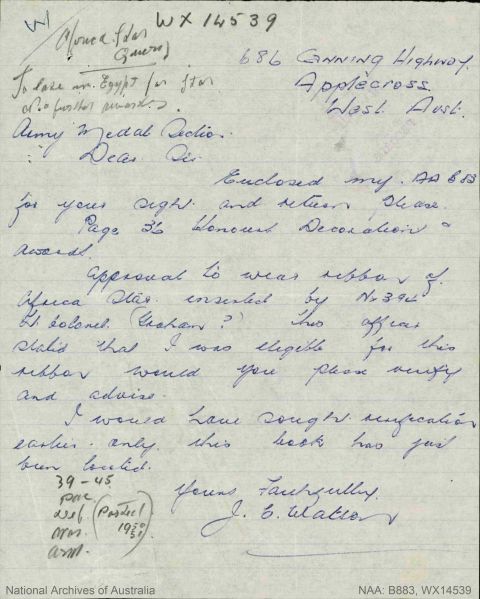 W
WX14539
Africa Star
Query
686 Canning Highway.
Applecross.
West. Aust.
To late in Egypt for Star
Army Medal Section.
Dear Sir.
Enclosed my. AA B83
for your sight and return please.
Page 36 Honours Decorations &
awards.
approval to wear ribbon of
Africa Star. inserted by
Lt. Colonel. (Graham?) this officer
stated that I was eligible for this
ribbon would you please verify
and advise.
I would have sought verification
earlier. only. this book has just
been located.
39-45
Pac
Def. (Posted
War. 1950
51)
ASM.
Yours Faithfully.
J. E. Watson
National Archives of Australia
NAA: B883, WX14539